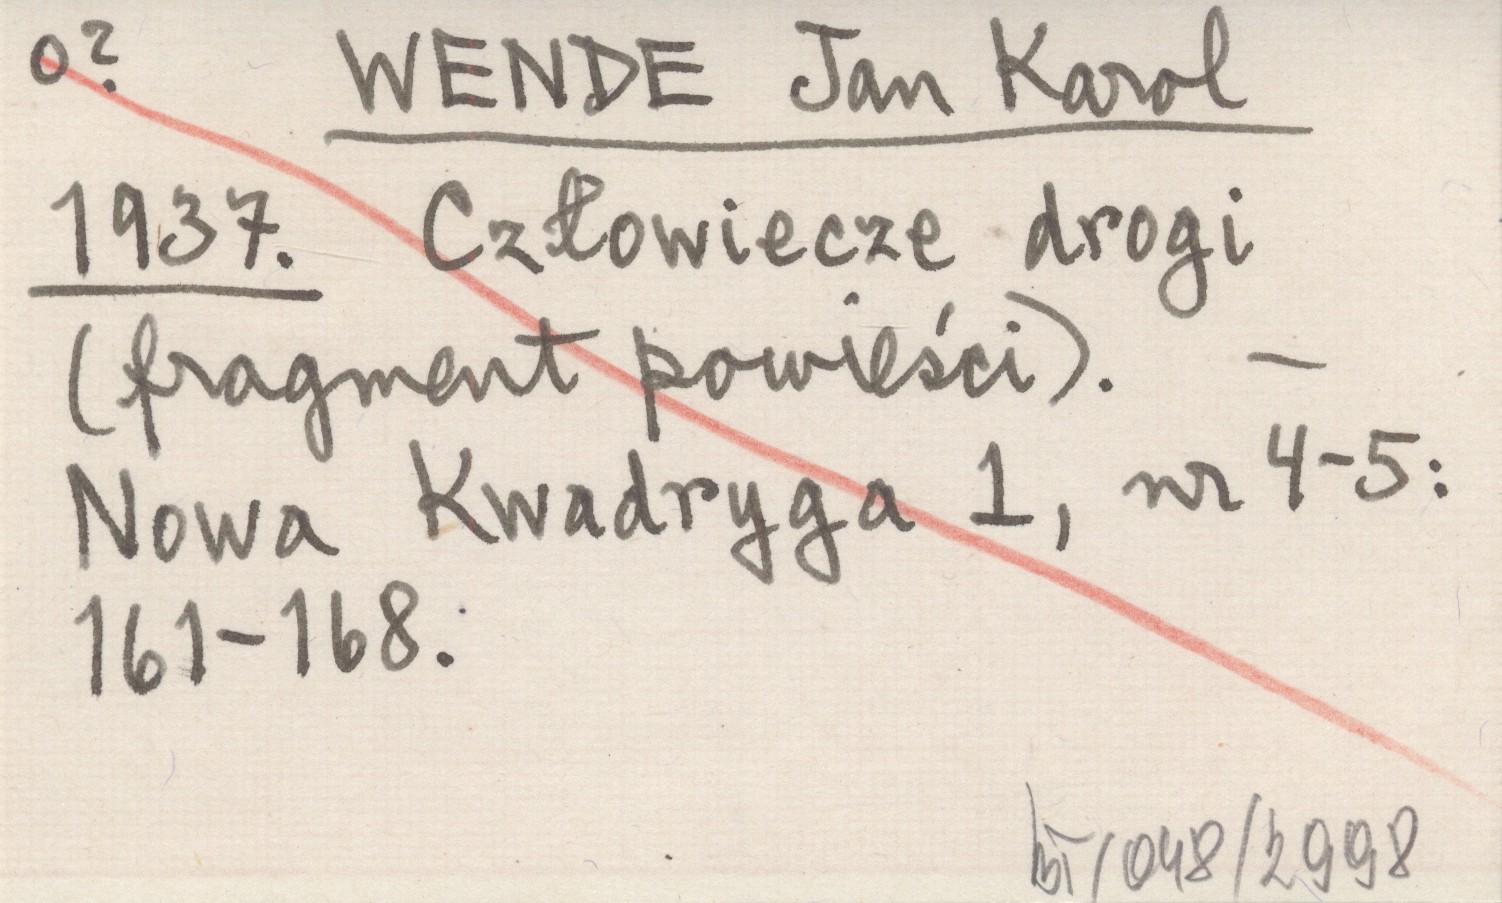 o? WENDE Jan Karol
1937. Człowiecze drogi
(fragment powieści). —
Nowa Kwadryga 1, nr 4-5:
161-168.
/048/2998